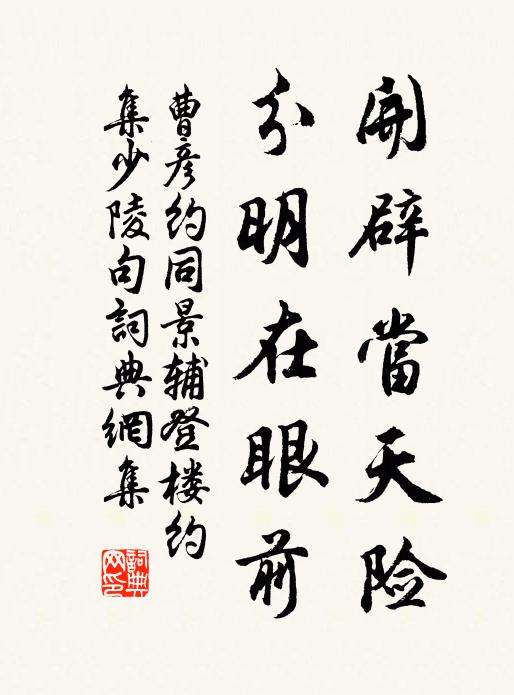 開辟當天险
分明在眼前
曹彦约同景辅登楼约
集少陵句詞典網集
詞典网印